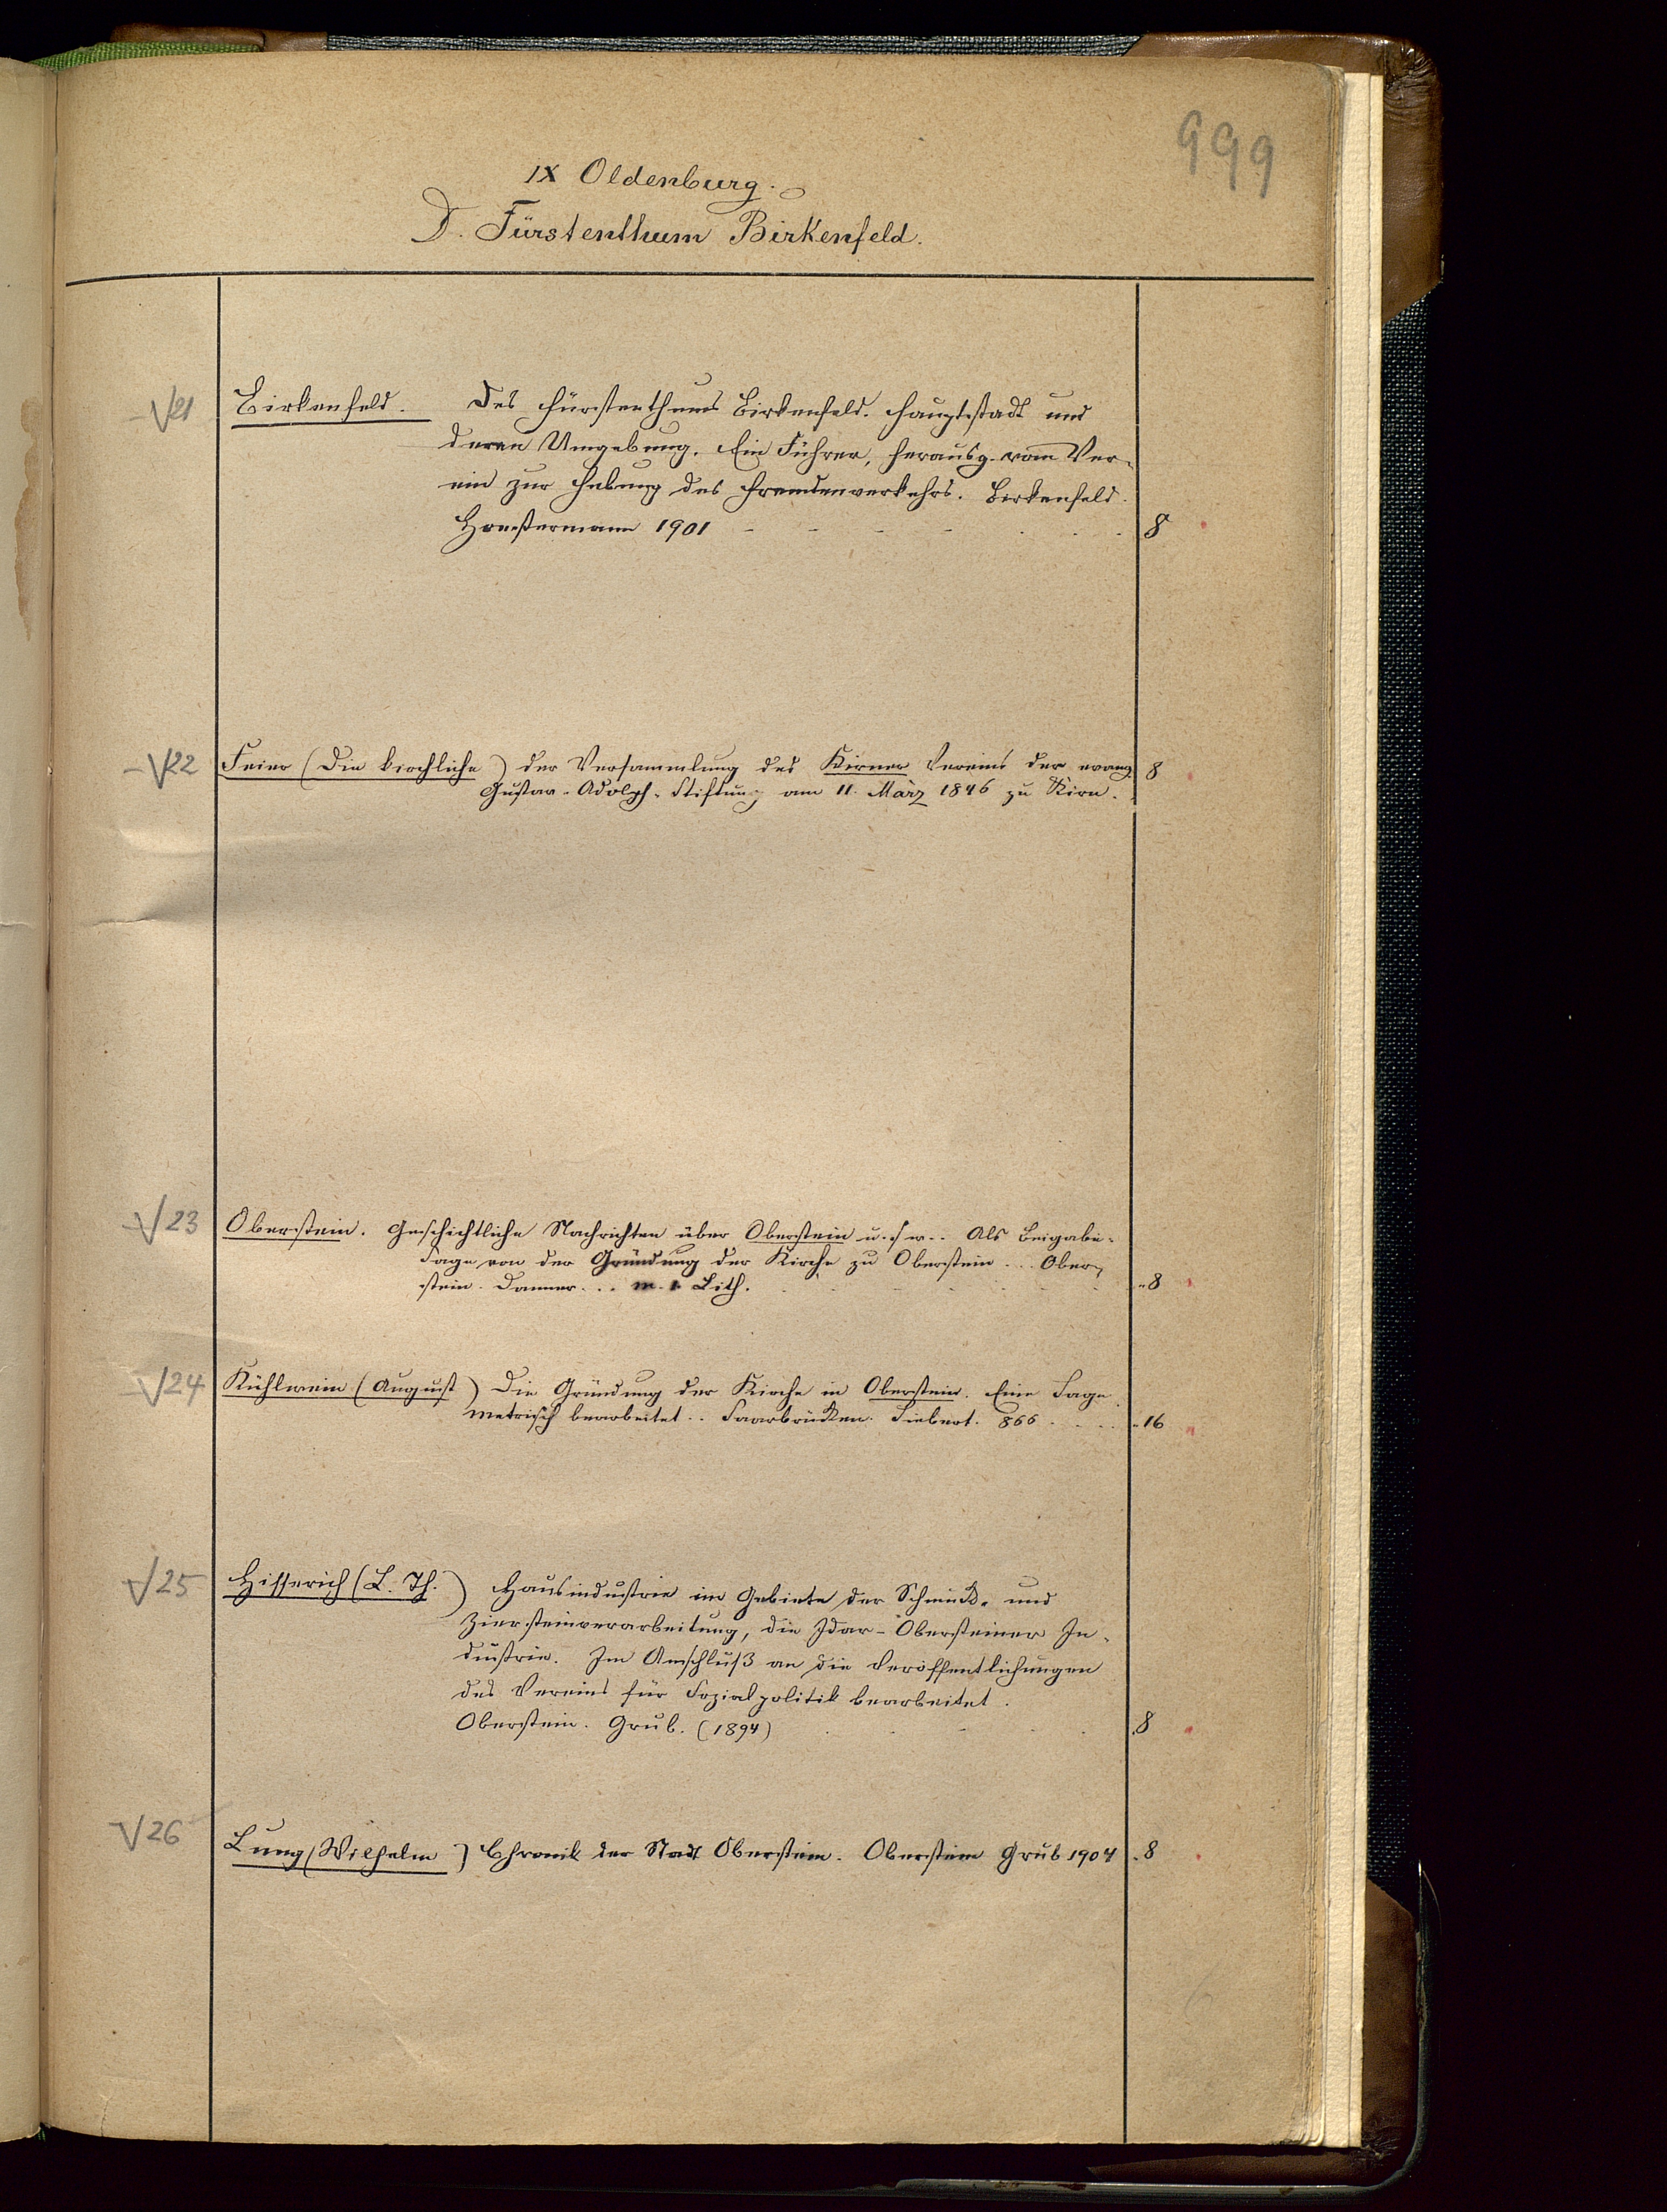 999
IX Oldenburg.
D. Fürstenthum Birkenfeld.
21 Birkenfeld. Des Fürstenthums Birkenfeld. Hauptstadt und
deren Umgebung. Ein Führer, herausg. vom Ver-
ein zur Hebung des Fremdenverkehrs. Birkenfeld.
1901 8
22 Feier (Die kirchliche) der Versammlung des Kirner Vereins der evang. 8
Gustav-Adolph-Stiftung am 11. März 1846 zu Kirn.
23 Oberstein. Geschichtliche Nachrichten über Oberstein u. s. w.. Als Beigabe:
Sage von der Gründung der Kirche zu Oberstein... Ober-
stein. Danner... m. 1. Lith. 8
24 Kühlwein (August) Die Gründung der Kirche in Oberstein. Eine Sage
metrisch bearbeitet.. Saarbrücken. Siebert. 866 16
25 Hisserich (L. Th.) Hausindustrie im Gebiete der Schmuck- und
Ziersteinverarbeitung, die Idar-Obersteiner In-
dustrie. Im Anschluß an die Veröffentlichungen
des Vereins für Sozialpolitik bearbeitet.
Oberstein. Grub. (1894) 8
26 Lung (Wilhelm) Chronik der Stadt Oberstein. Oberstein Grub 1904 8